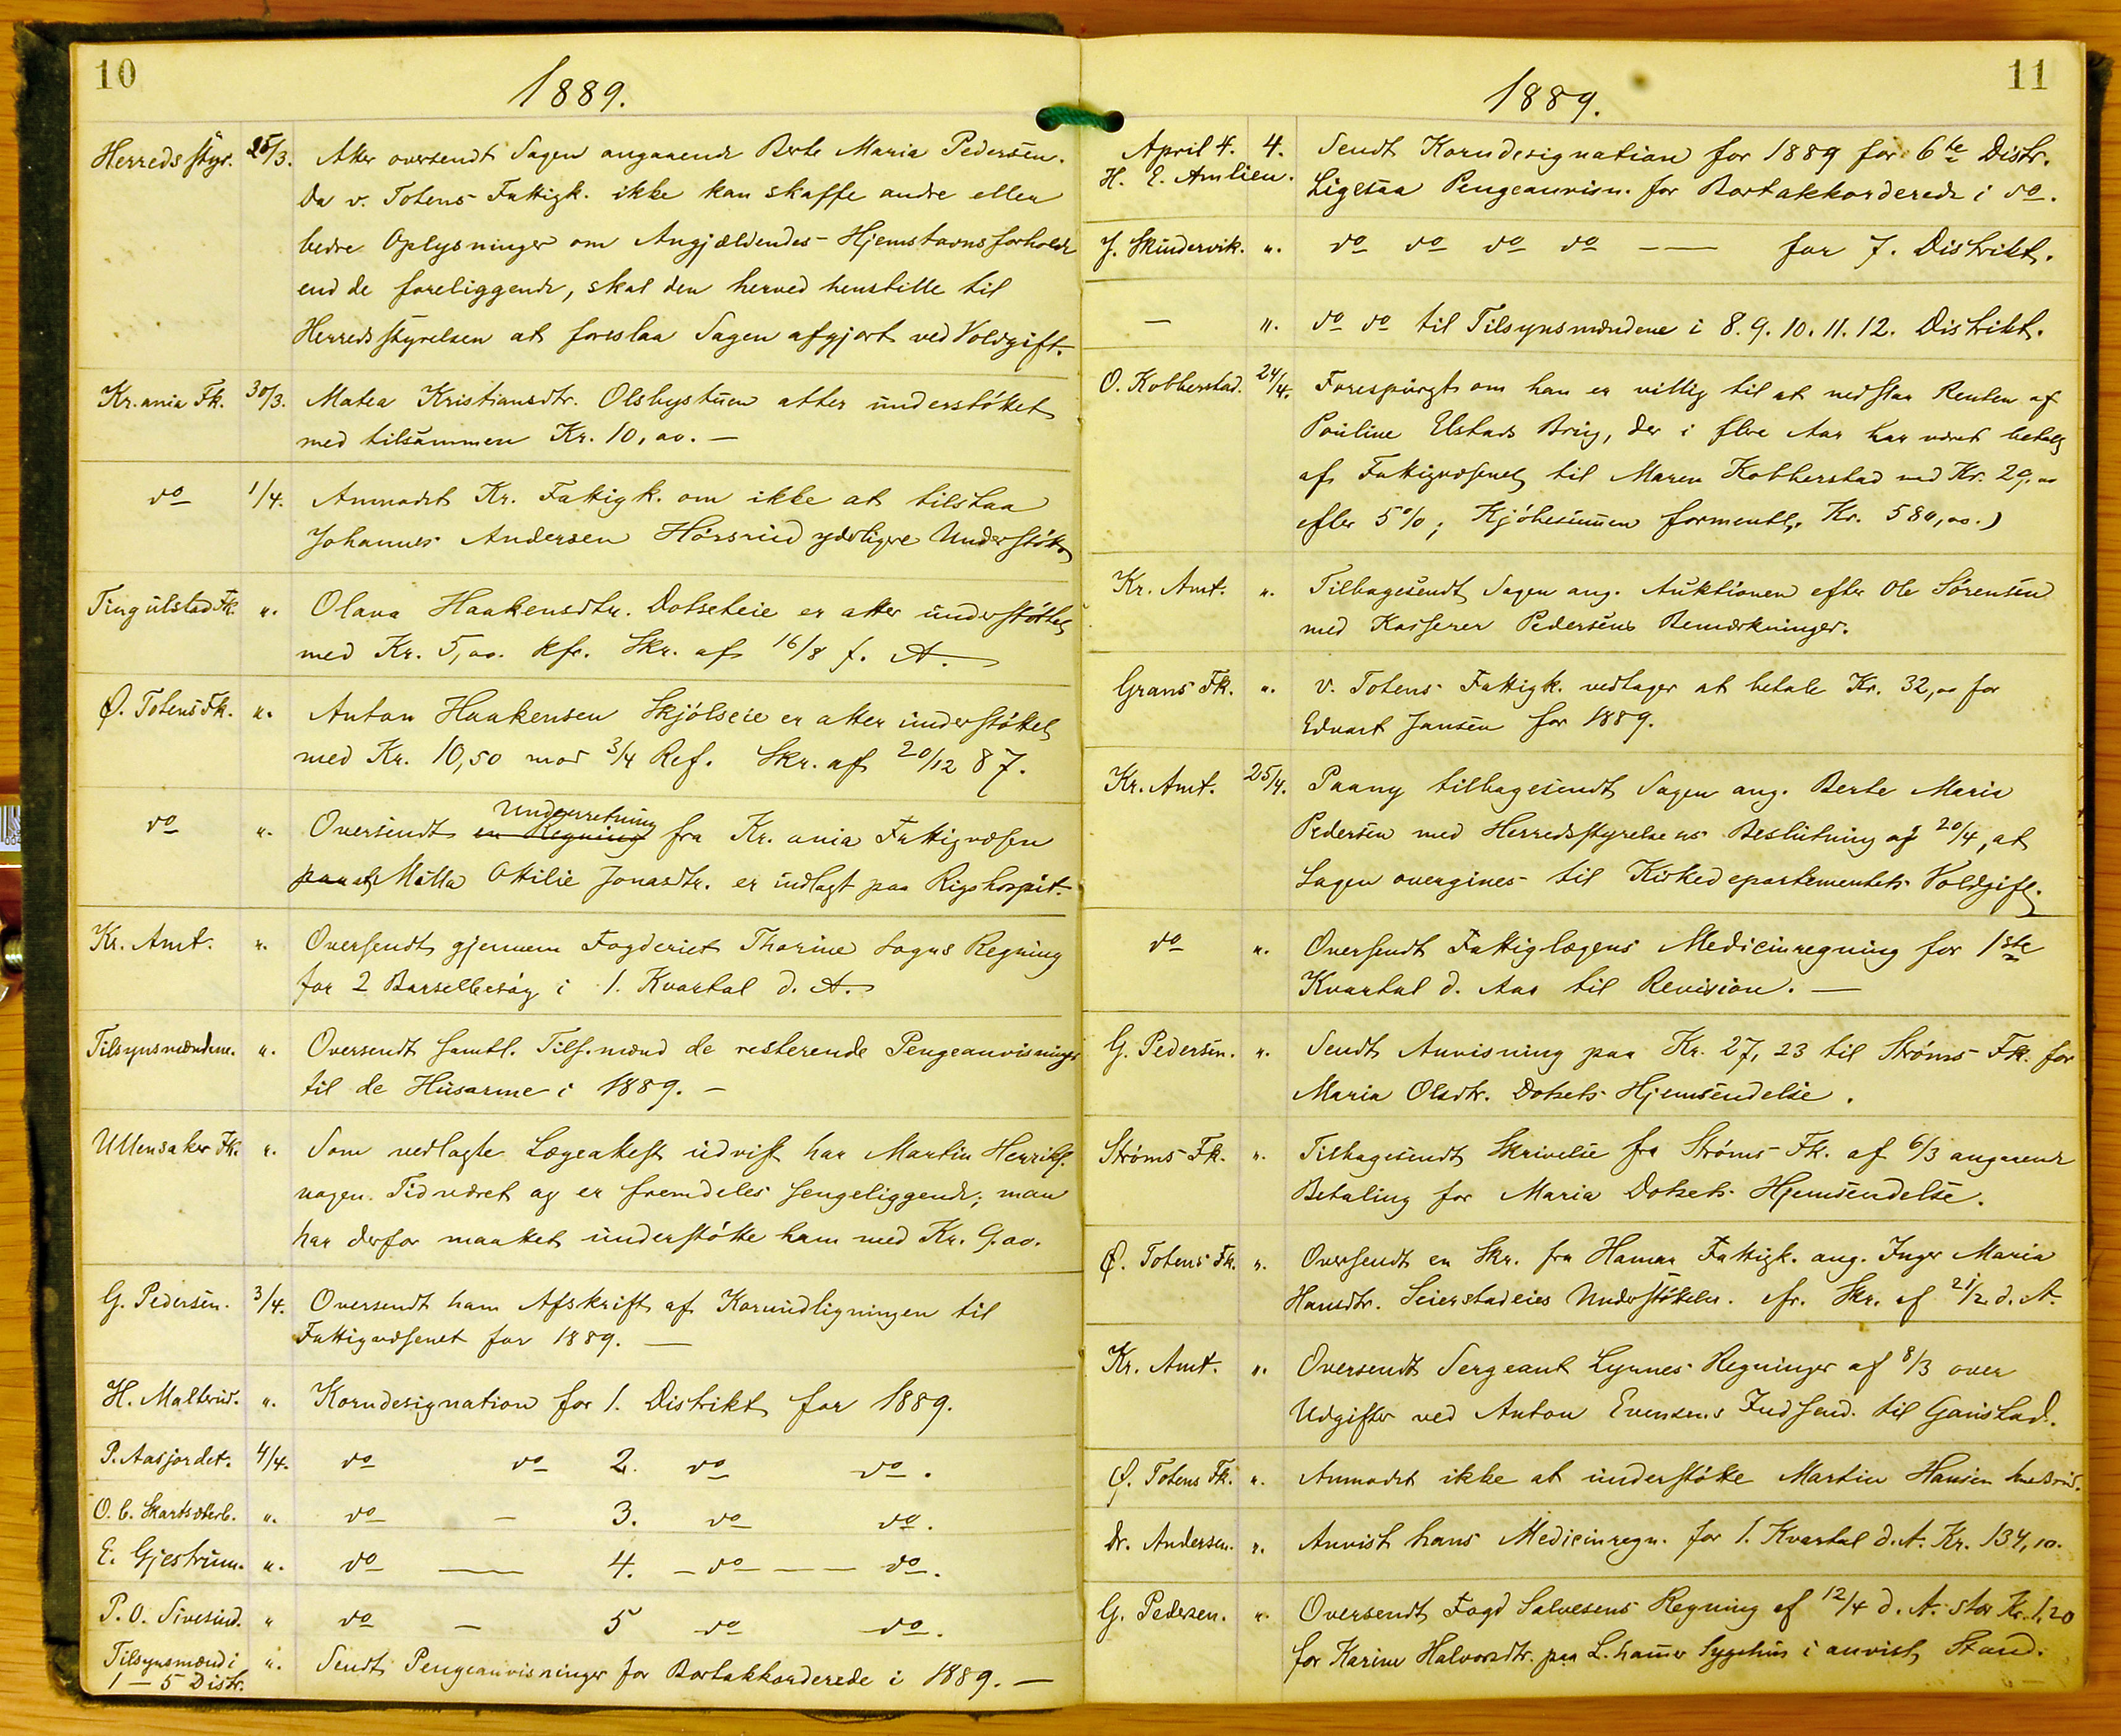 10
1889.
Herredsstyr. 25/3. Atter oversendt Sagen angaaende Berte Maria Pedersen.
Da v. Totens Fattigk. ikke kan skaffe andre eller
bedre Oplysninger om Angjældendes Hjemstavnsforholde
end de foreliggende, skal den herved henstille til
Herredsstyrelsen at foreslaa Sagen afgjort ved Voldgift.
Kr.ania Fk. 30/3. Matea Kristiansdtr. Olsbystuen atter understøttet
med tilsammen Kr. 10,00. —
do 1/4. Anmodet Kr. Fattigk. om ikke at tilstaa
Johannes Andersen Hørsrud yderligere Understøt.
Tingulstad Fk. ". Olava Haakensdtr. Dotseteie er atter understøttet
med Kr. 5,00. kfr. Skr. af 16/8 f. A.
Ø. Totens Fk. ". Anton Haakensen Skjølseie er atter understøttet
med Kr. 10,50 mod 3/4 Ref. Skr. af 20/12 87.
Underretning
do ". Oversendt en Regning fra Kr.ania Fattigvæsen
paa at Mälla Otilie Jonasdtr. er indlagt paa Rigshospit.
Kr. Amt. ". Oversendt gjennem Fogderiet Thorine Sogns Regning
for 2 Barselbesøg i 1. Kvartal d. A.
Tilsynsmændene. ". Oversendt samtl. Tilf.mænd de resterende Pengeanvisninger
til de Husarme i 1889. —
Ullensaker Fk. ". Som vedlagte Lægeattest udvist har Martin Henriks.
nogen Tid været og er fremdeles sengeliggende; man
har derfor maattet understøtte ham med Kr. 9.00.
G. Pedersen. 3/4. Oversendt ham Afskrift af Kornudligningen til
Fattigvæsenet for 1889. —
H. Malterud. ". Korndesignation for 1. Distrikt for 1889.
P. Aasjordet. 4/4. do do 2. do do.
O. C. Skartsæterb. ". do — 3. do do.
E. Gjestrum. ". do — 4. — do — — do.
P. O. Sivesind. " do — 5 do do.
Tilsynsmænd i ". Sendt Pengeanvisninger for Bortakkorderede i 1889. —
1 — 5 Distr.
11
1889.
April 4. 4. Sendt Korndesignation for 1889 for 6te Distr.
H. E. Amlien. Ligesaa Pengeanvisn. for Bortakkorderede i do.
J. Skundervik. ". do do do do — — for 7. Distrikt.
— ". do do til Tilsynsmændene i 8. 9. 10. 11. 12. Distrikt.
O. Kobberstad. 24/4. Forespurgt om han er villig til at nedslaa Renten af
Pouline Elstads Brug, der i flere Aar har været betalt
af Fattigvæsenet til Maren Kobberstad med Kr. 29,00
efter 5%; Kjøbesummen formentl. Kr. 580,00.)
Kr. Amt. ". Tilbagesendt Sagen ang. Auktionen efter Ole Sørensen
med Kasserer Pedersens Bemærkninger.
Grans Fk. ". v. Totens Fattigk. vedtager at betale Kr. 32,00 for
Edvart Jansen for 1889.
Kr. Amt. 25/4. Paany tilbagesendt Sagen ang. Berte Maria
Pedersen med Herredsstyrelsens Beslutning af 20/4, at
Sagen overgives til Kirkedepartementets Voldgift.
do ". Oversendt Fattiglægens Medicinregning for 1ste
Kvartal d. Aar til Revision. —
G. Pedersen. ". Sendt Anvisning paa Kr. 27,23 til Strøms Fk. for
Maria Olsdtr. Dotsets Hjemsendelse.
Strøms Fk. ". Tilbagesendt Skrivelse fra Strøms Fk. af 6/3 angaaende
Betaling for Maria Dotsets Hjemsendelse.
Ø. Totens Fk. ". Oversendt en Skr. fra Hamar Fattigk. ang. Inger Maria
Hansdtr. Seierstadeies Understøttelse. cfr. Skr. af 21/2 d. A.
Kr. Amt. ". Oversendt Sergeant Lynnes Regninger af 8/3 over
Udgifter ved Anton Evensens Indsend. til Gaustad.
Ø. Totens Fk. ". Anmodet ikke at understøtte Martin Hansen
Dr. Andersen. ". Anvist hans Medicinregn. for 1. Kvartal d. A. Kr. 134,10.
G. Pedersen. ". Oversendt Fogd Salvesens Regning af 12/4 d. A. stor Kr. 1,20
for Karine Halvorsdtr. paa L.hamer Sygehus i anvist Stand.